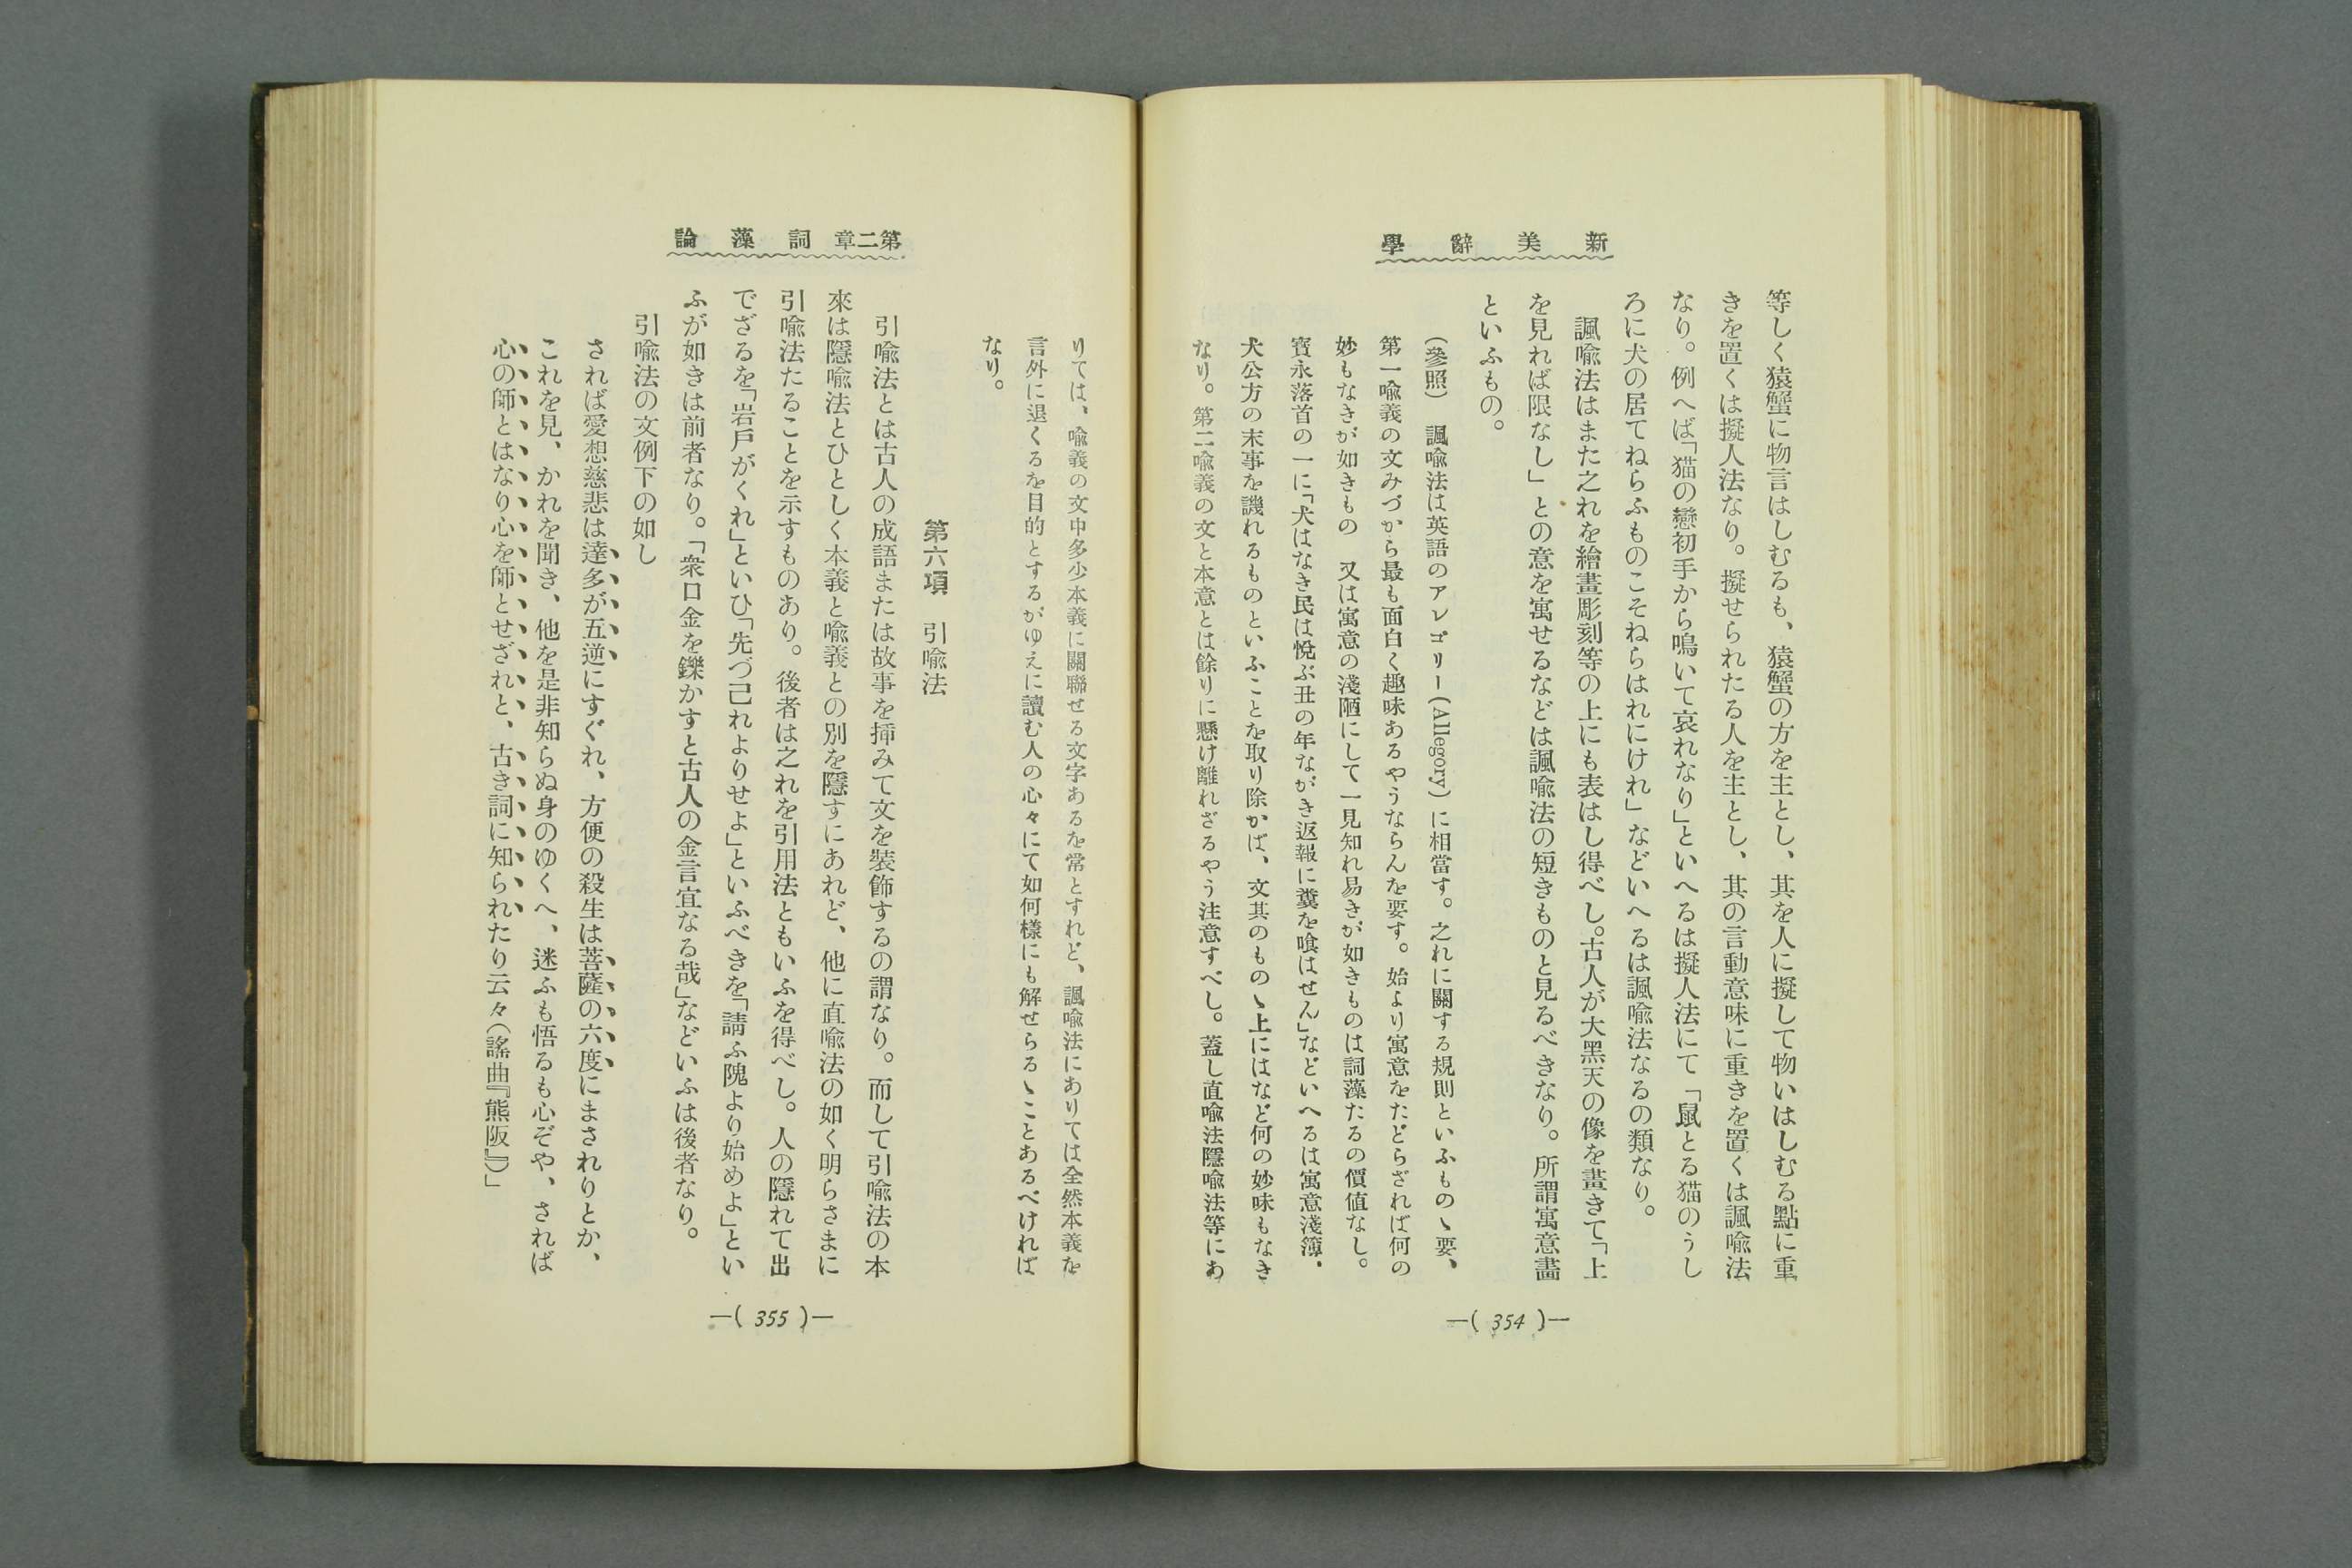 新美辭學
等しく猿蟹に物言はしむるも、猿蟹の方を主とし、其を人に擬して物いはしむる點に重
きを置くは擬人法なり。擬せられたる人を主とし、其の言動意味に重きを置くは諷喩法
なり。例へば「猫の戀初手から鳴いて哀れなり」といへるは擬人法にて「鼠とる猫のうし
ろに犬の居てねらふものこそねらはれにけれ」などいへるは諷喩法なるの類なり。
諷喩法はまた之れを繪畫彫刻等の上にも表はし得べし。古人が大黑天の像を畫きて「上
を見れば限なし」との意を寓せるなどは諷喩法の短きものと見るべきなり。所謂寓意畵
といふもの。
(參照)　諷喩法は英語のアレゴリー(Allegory)に相當す。之れに關する規則といふものゝ要、
第一喩義の文みづから最も面白く趣味あるやうならんを要す。始より寓意をたどらざれば何の
妙もなきが如きもの　又は寓意の淺陋にして一見知れ易きが如きものは詞藻たるの價値なし。
寳永落首の一に「犬はなき民は悦ぶ丑の年ながき返報に糞を喰はせん」などいへるは寓意淺簿.
犬公方の末事を譏れるものといふことを取り除かば、文其のものゝ上にはなど何の妙味もなき
なり。第二喩義の文と本意とは餘りに懸け離れざるやう注意すべし。蓋し直喩法隱喩法等にあ
—( 354 )—
第二章　詞藻論
りては、喩義の文中多少本義に關聯せる文字あるを常とすれど、諷喩法にありては全然本義を
言外に退くるを目的とするがゆえに讀む人の心々にて如何樣にも解せらるゝことあるべければ
なり。
第六項　引喩法
引喩法とは古人の成語または故事を挿みて文を裝飾するの謂なり。而して引喩法の本
來は隱喩法とひとしく本義と喩義との別を隱すにあれど、他に直喩法の如く明らさまに
引喩法たることを示すものあり。後者は之れを引用法ともいふを得べし。人の隱れて出
でざるを「岩戸がくれ」といひ「先づ己れよりせよ」といふべきを「請ふ隗より始めよ」とい
ふが如きは前者なり。「衆口金を鑠かすと古人の金言宜なる哉」などいふは後者なり。
引喩法の文例下の如し
されば愛想慈悲は達多が五逆にすぐれ、方便の殺生は菩薩の六度にまされりとか、
これを見、かれを聞き、他を是非知らぬ身のゆくへ、迷ふも悟るも心ぞや、されば
心の師とはなり心を師とせざれと、古き詞に知られたり云々(謠曲『熊阪』)」
—( 355 )—